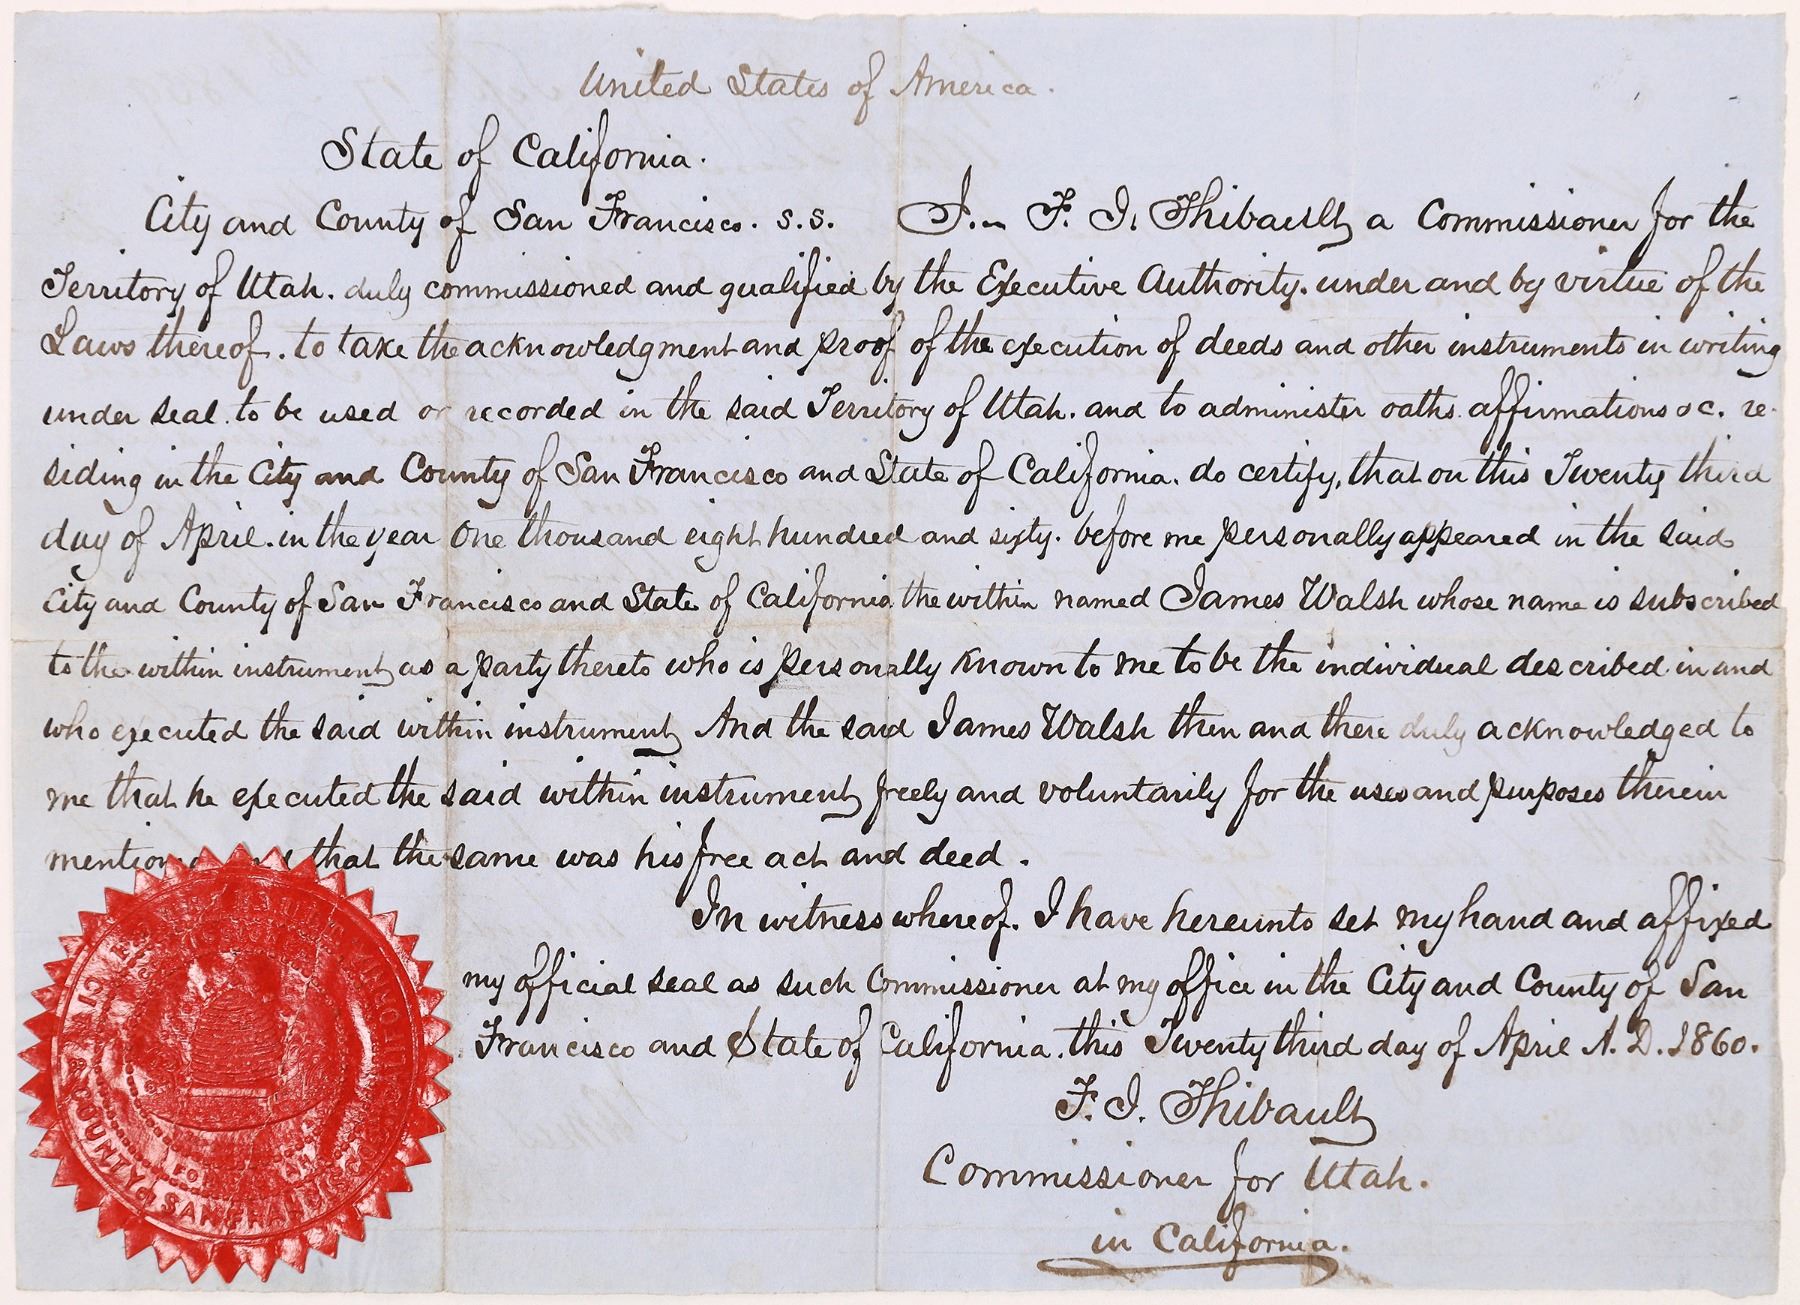 United States of America.
State of California.
City and County of San Francisco. S.S. I.. F. J. Thibault a Commissioner for the
Territory of Utah. duly commissioned and qualified by the Executive Authority. under and by virtue of the
Laws thereof. to take the acknowledgment and proof of the execution of deeds and other instruments in writing
under seal. to be used or recorded in the said Territory of Utah. and to administer oaths. affirmations &c. re-
siding in the City and County of San Francisco and State of California. do certify, that on this Twenty third
day of April. in the year One thousand eight hundred and sixty. before me personally appeared in the said
City and County of San Francisco and State of California the within named James Walsh whose name is subscribed
to the within instrument as a party thereto who is personally known to me to be the individual described in and
who executed the said within instrument And the said James Walsh then and there duly acknowledged to
me that he executed the said within instrument freely and voluntarily for the uses and purposes therein
that the same was his free act and deed.
In witness whereof. I have hereunto set my hand and affixed
my official seal as such Commissioner at my office in the City and County of San
Francisco and State of California. this Twenty third day of April A. D. 1860.
F. J. Thibault
Commissioner for Utah.
in California.
COUNTY OF SAN FRANCISCO